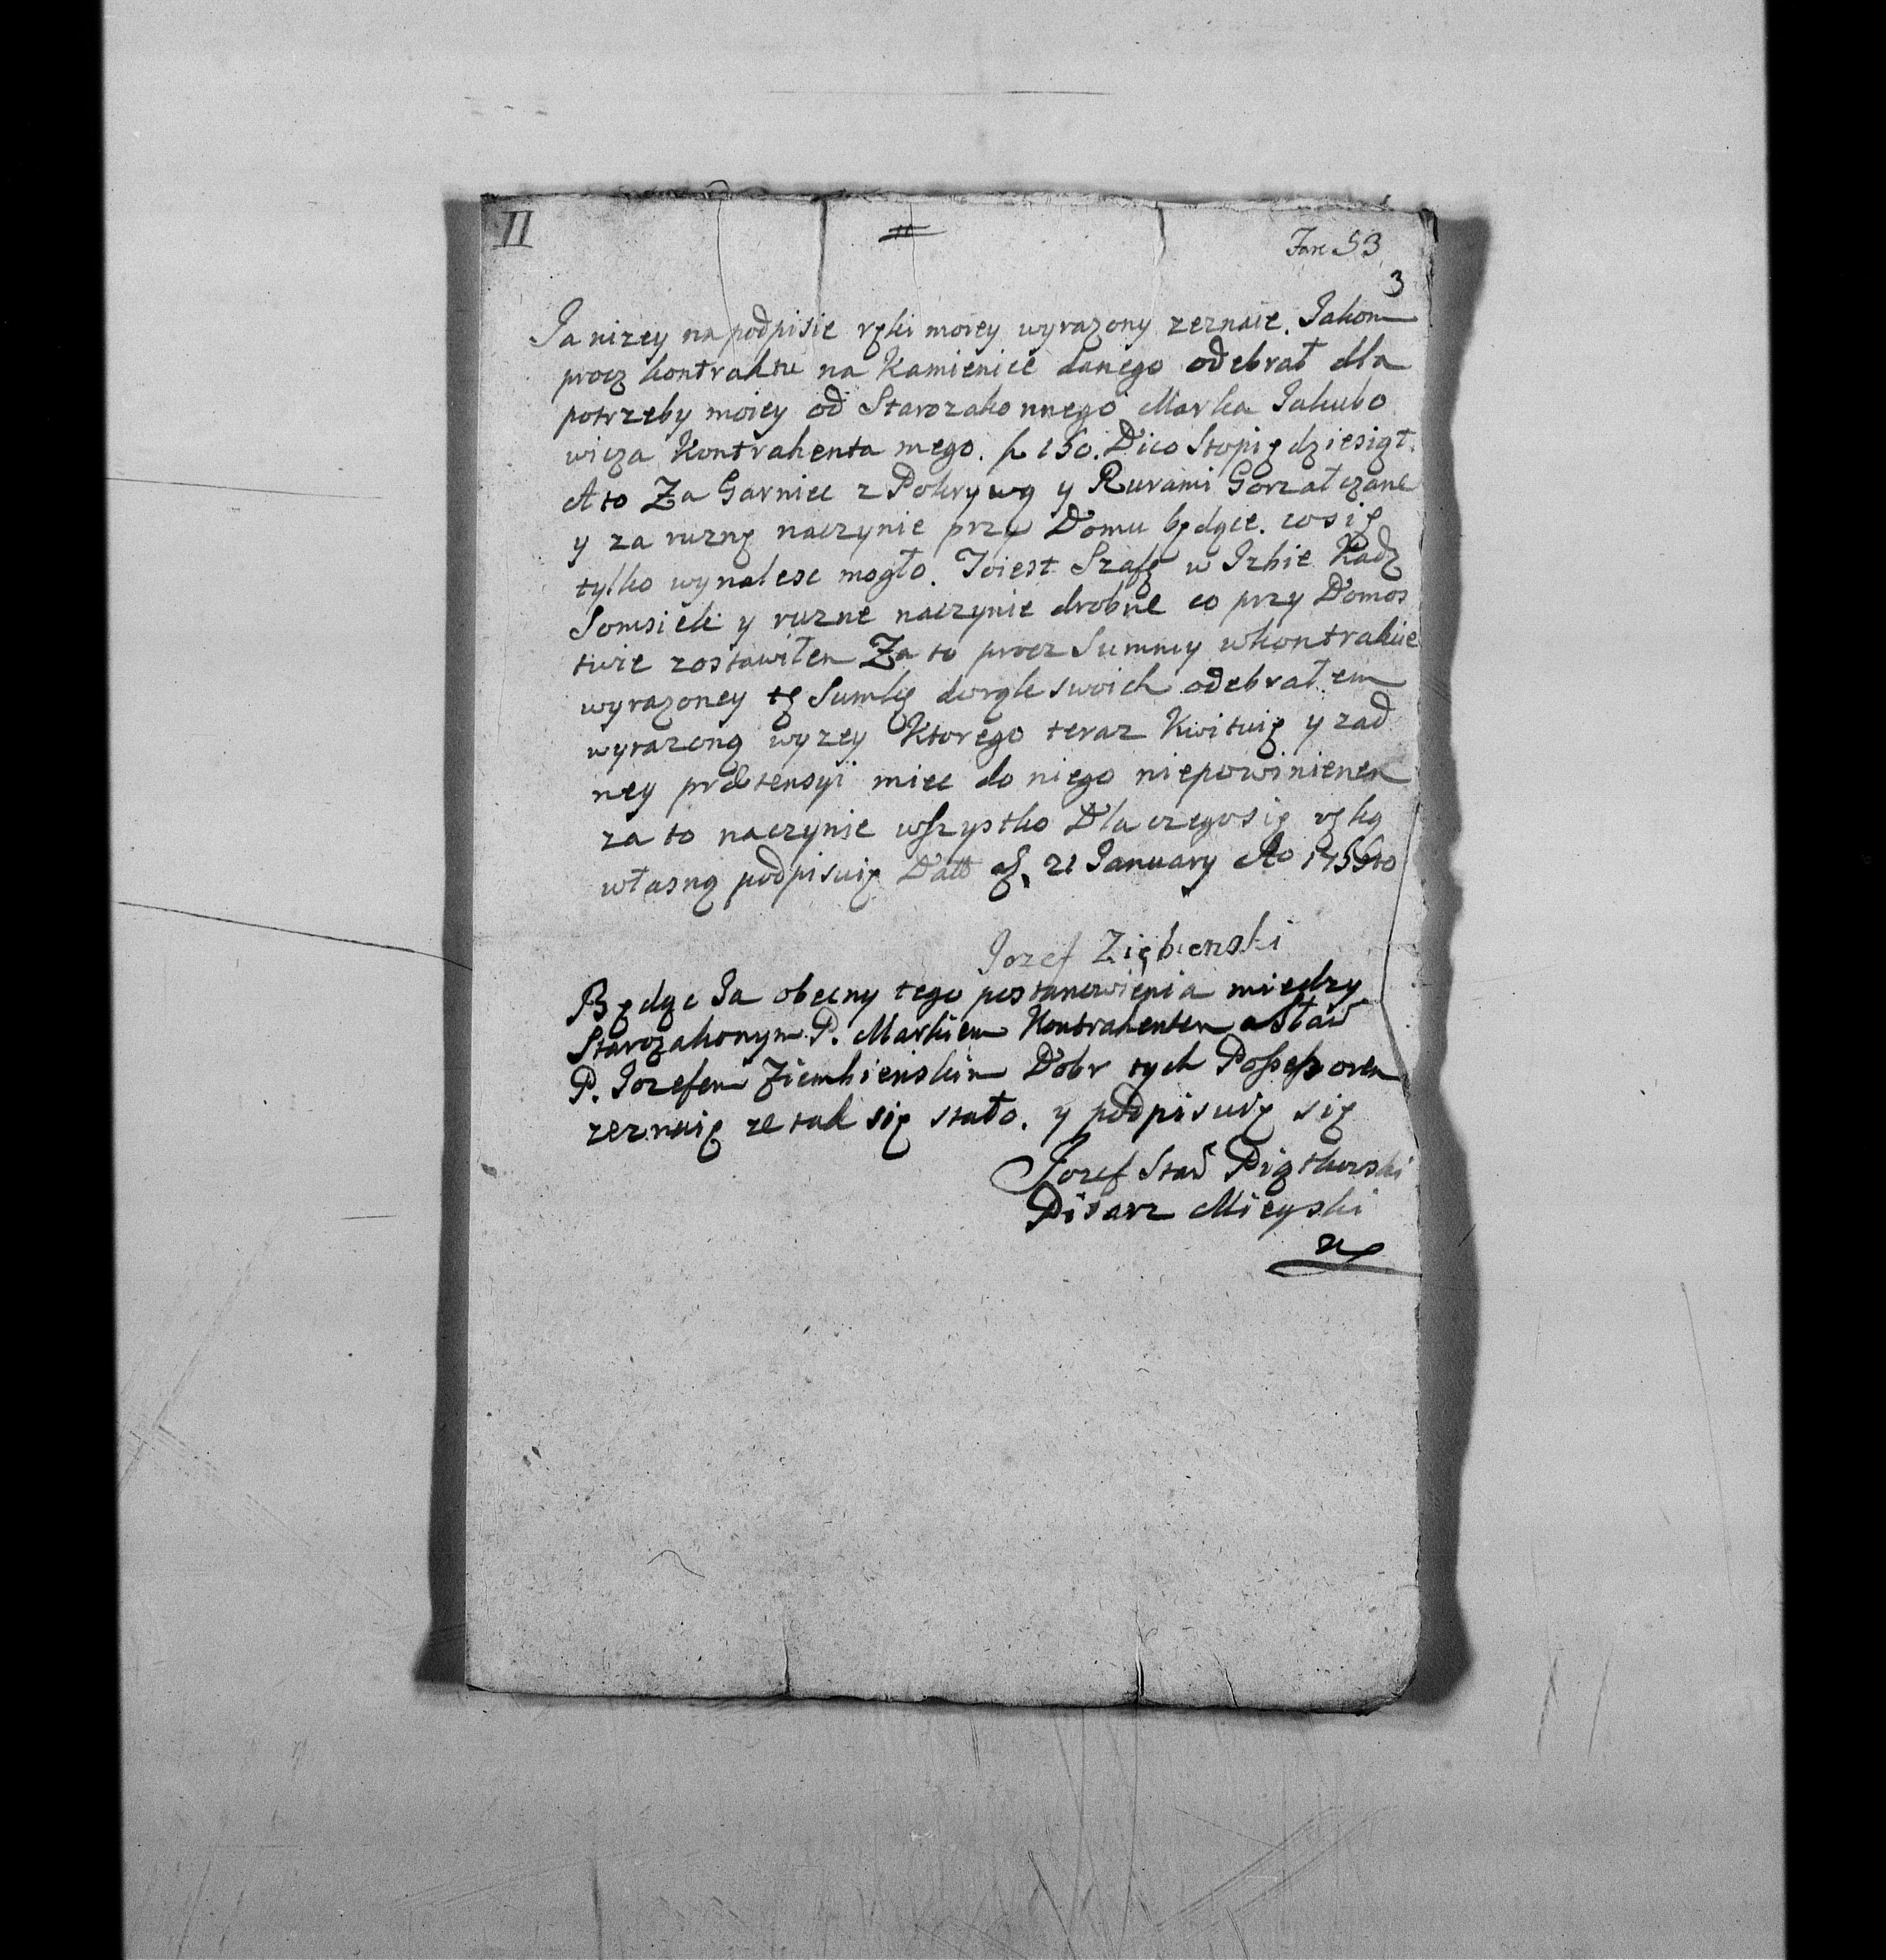 II
Fare 53
3
Ia nizey na podpisie ręki moiey wyrazony zeznaie. Iakom
procz kontraktu na Kamienice danego odebrał dla
potrzeby moiey od Starozakonnego Marka Iakubo
wicza Kontrahenta mego. 150. Dico Stopiędziesiąt.
A to Za Garniec z Pokrywą y Rurami Gorzałczane
y za ruznę naczynie przy Domu będące. co się
tylko wynalesc mogło. Toiest Szafę w Izbie Kadz
Somsieki y ruzne naczynie drobne co przy Domos
twie zostawiłem Za to procz Summy wkontrakcie
wyrazoney tę Sumkę do rąk swoich odebrałem
wyrazoną wyzey Ktorego teraz Kwituię y zad
ney prætensyi miec do niego niepowinienem
za to naczynie wszystko Dla czego się ręką
własną podpisuię Datt 21 January Ao
Iozef Ziębienski
Będąc Ia obecny tego postanowienia miedzy
Starozakonym P. Markiem Kontrahentem a Staw
P. Iozefem Ziembienskim Dobr tych Possessorem
zeznaię ze tak się stało. y podpisuię się
Jozef Staw Piątkowski
Pisarz Mieyski